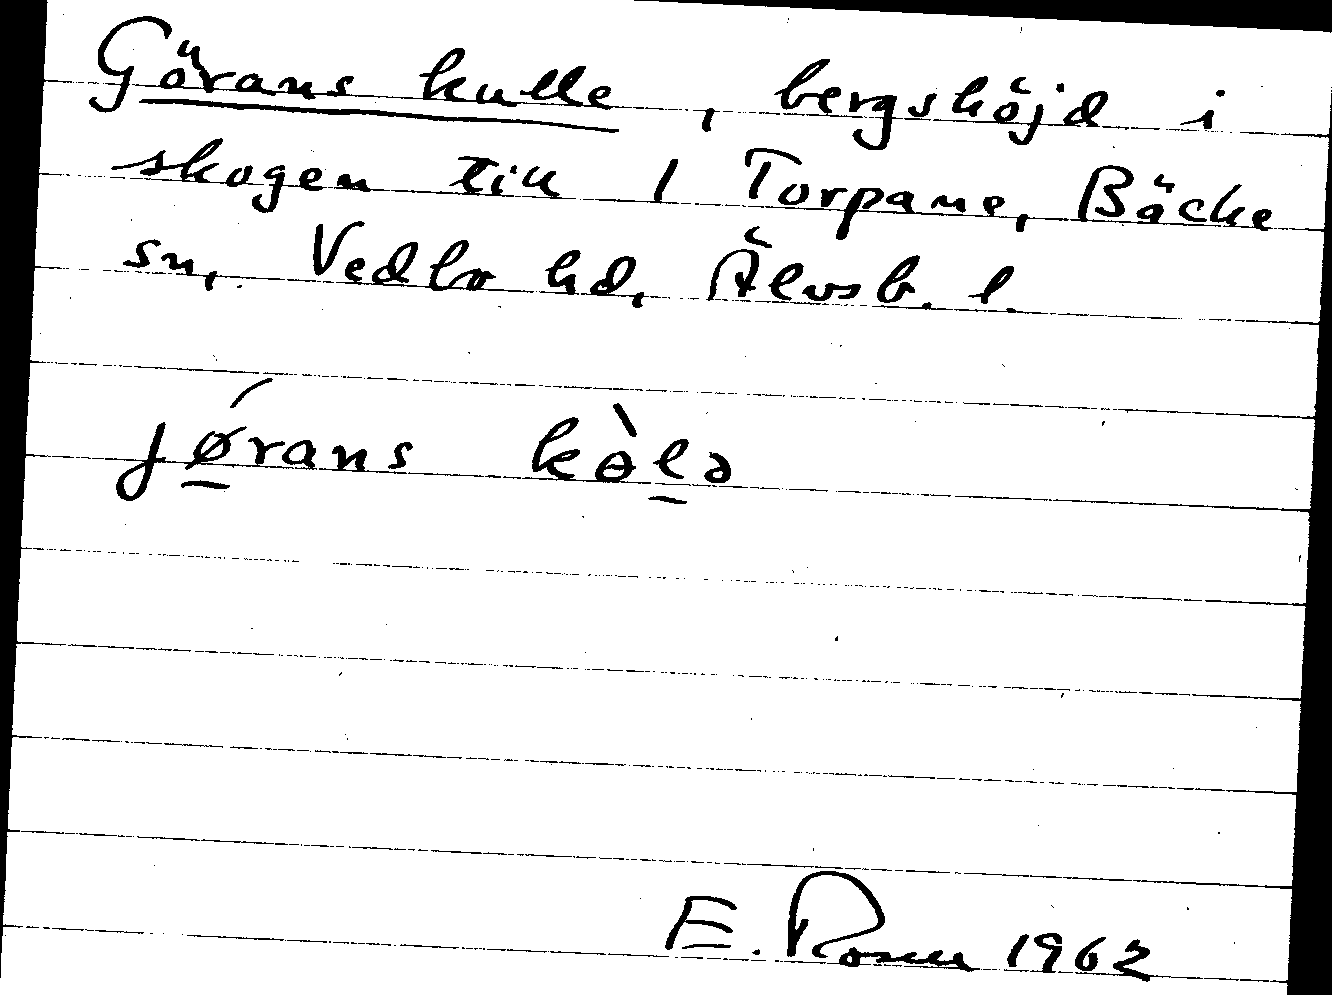 Görans kulle, bergshöjd i
skogen till 1 Torpane, Bäcke
sn, Vedbo hd, Älvsb. l.
jǿ̱rans kɵ̀ḻə
E. Rosen 1962